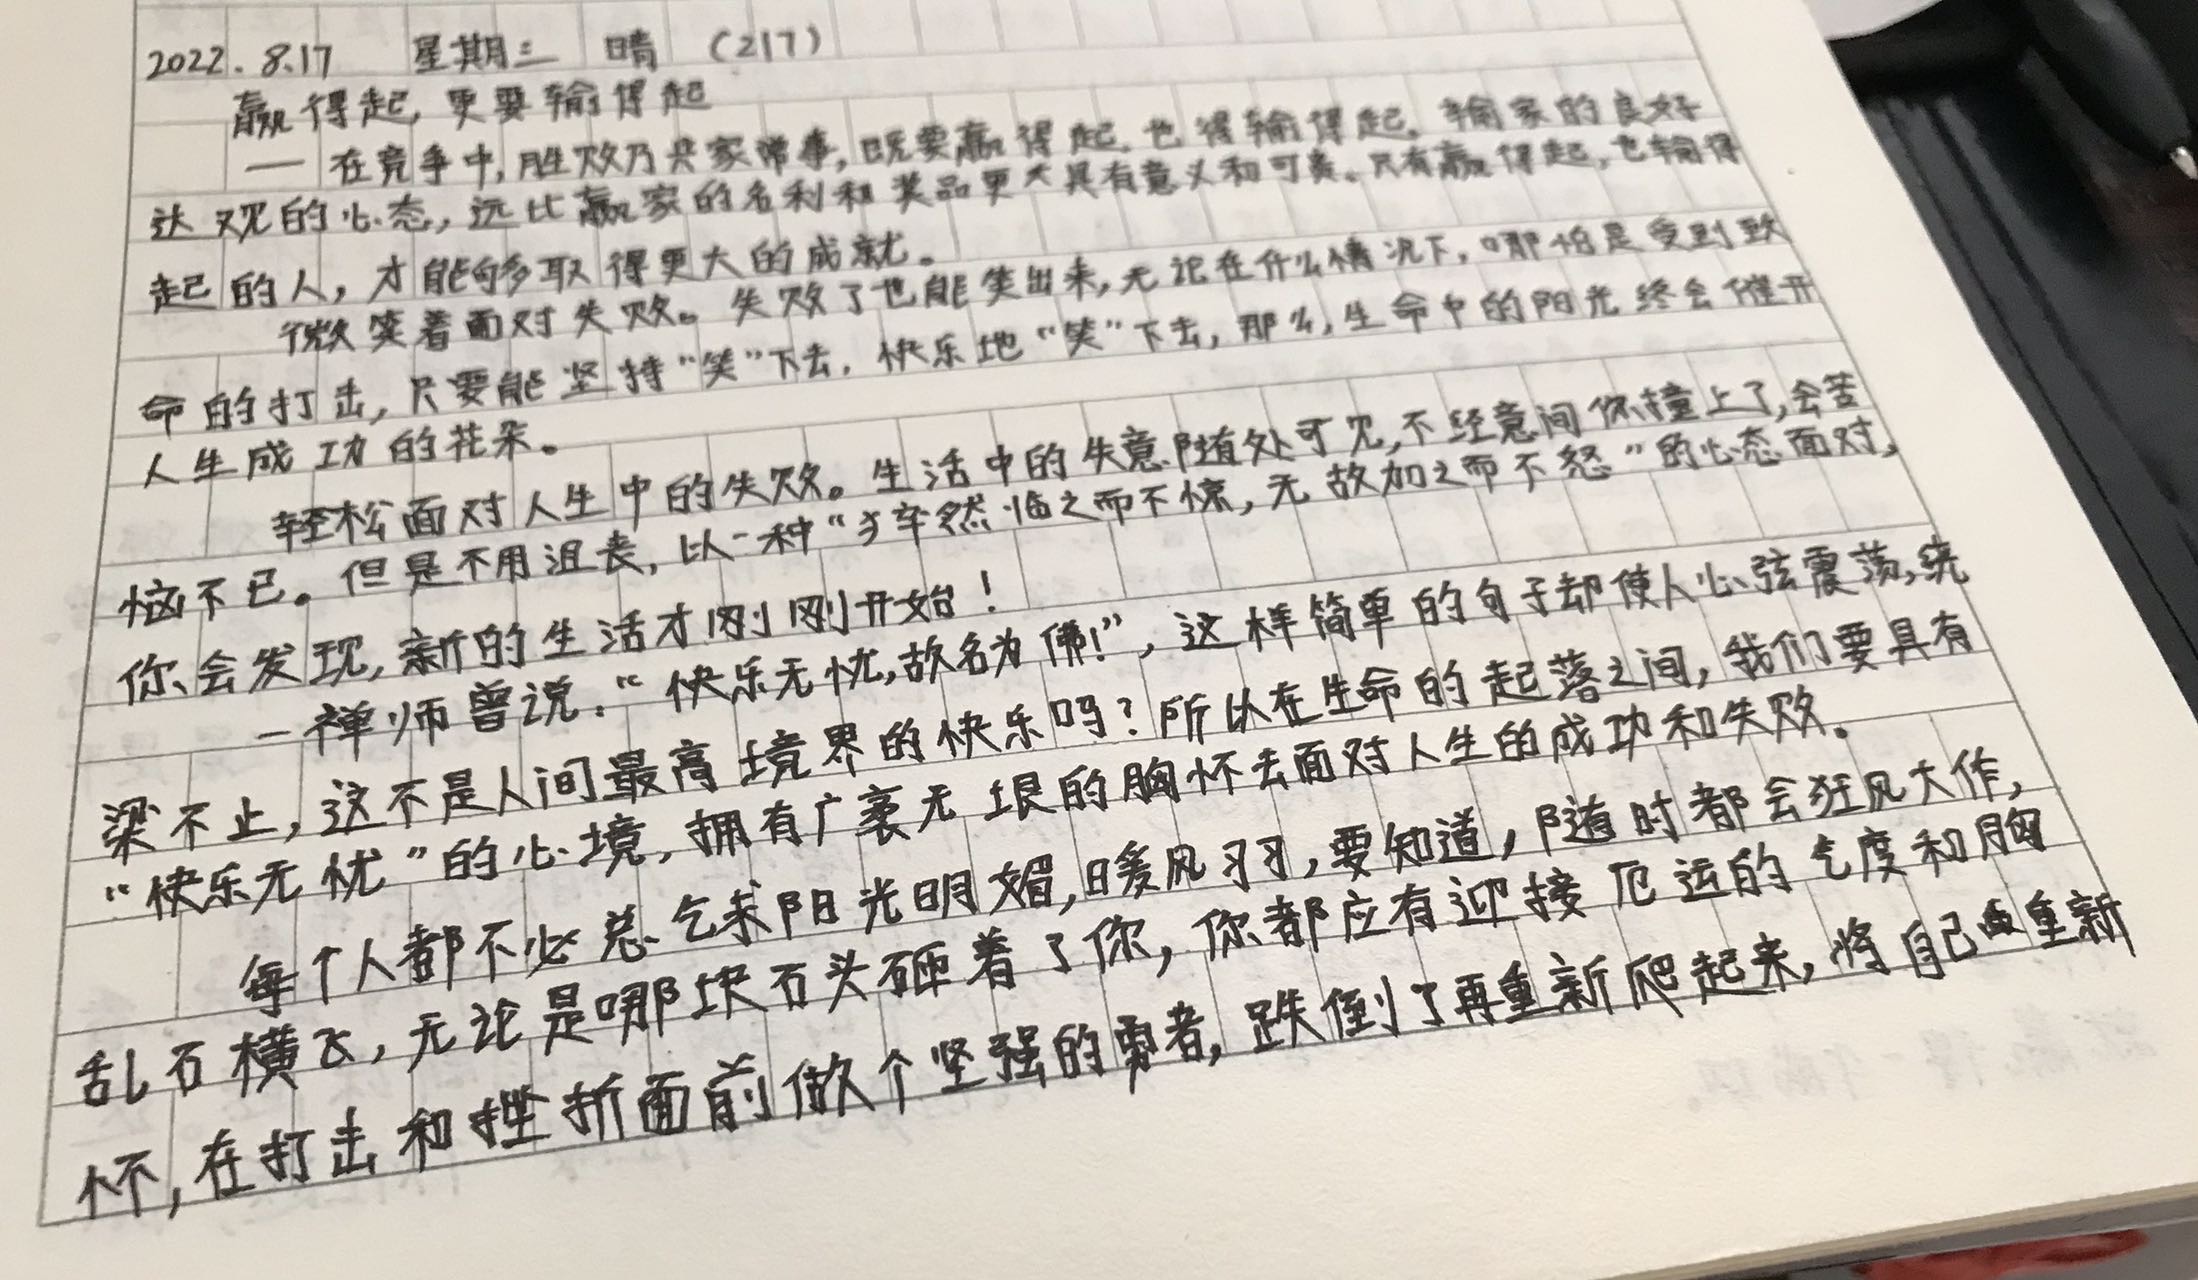 2022.8.17 星期三 晴 (217)
赢得起,更要输得起
— 在竞争中,胜败乃兵家常事,既要赢得起,也得输得起。输家的良好
达观的心态,远比赢家的名利和奖品更大具有意义和可贵。只有赢得起,也输得
起的人,才能够取得更大的成就。
微笑着面对失败。失败了也能笑出来,无论在什么情况下,哪怕是受到致
命的打击,只要能坚持“笑”下去,快乐地“笑”下去,那么,生命中的阳光终会催开
人生成功的花朵。
轻松面对人生中的失败。生活中的失意随处可见,不经意间你撞上了,会苦
恼不已。但是不用沮丧,以一种“猝然临之而不惊,无故加之而不怒”的心态面对,
你会发现,新的生活才刚刚开始!
一禅师曾说:“快乐无忧,故名为佛!”,这样简单的句子却使人心弦震荡,绕
梁不止,这不是人间最高境界的快乐吗?所以在生命的起落之间,我们要具有
“快乐无忧”的心境,拥有广袤无垠的胸怀去面对人生的成功和失败。
每个人都不必总乞求阳光明媚,暖风习习,要知道,随时都会狂风大作,
乱石横飞,无论是哪块石头砸着了你,你都应有迎接厄运的气度和胸
怀,在打击和挫折面前做个坚强的勇者,跌倒了再重新爬起来,将自己重新